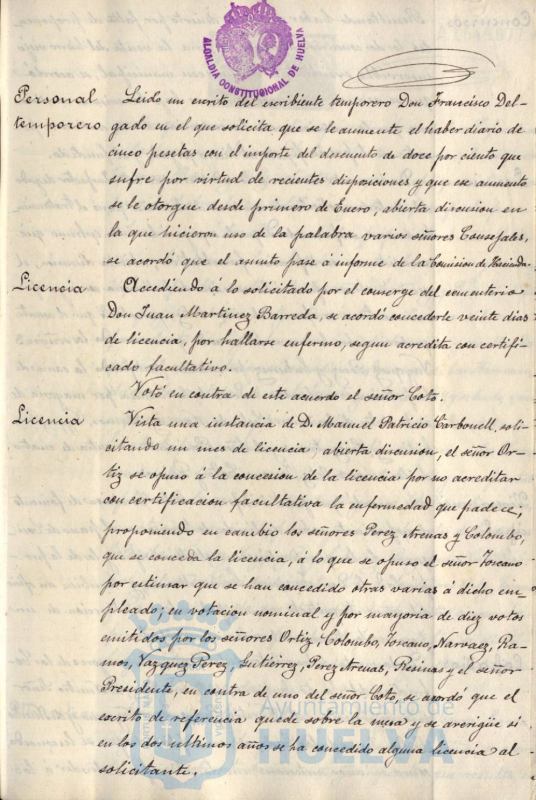 ALCALDIA CONSTITUCIONAL DE HUELVA
Personal temporero
Leido un escrito del escribiente temporero Don Francisco Del-
gado en el que solicita que se le aumente el haber diario de
cinco pesetas con el importe del descuento de doce por ciento que
sufre por virtud de recientes disposiciones y que ese aumento
se le otorgue desde primero de Enero; abierta discusion en
la que hicieron uso de la palabra varios señores Consejales,
se acordó que el asunto pase á informe de la Comision de Hacienda.
Licencia
Accediendo á lo solicitado por el conserge del cementerio
Don Juan Martinez Barreda, se acordó concederle veinte dias
de licencia, por hallarse enfermo, segun acredita con certifi-
cado facultativo.
Votó en contra de este acuerdo el señor Coto.
Licencia
Vista una instancia de D. Manuel Patricio Carbonell, soli-
citando un mes de licencia; abierta discusion, el señor Or-
tiz se opuso á la concesion de la licencia por no acreditar
con certificacion facultativa la enfermedad que padece;
proponiendo en cambio los señores Perez Arenas y Colombo,
que se conceda la licencia, á lo que se opuso el señor Toscano
por estimar que se han concedido otras varias á dicho em-
pleado; en votacion nominal y por mayoria de diez votos
emitidos por los señores Ortiz, Colombo, Toscano, Narvaez, Ra-
mos, Vazquez Perez, Gutiérrez, Perez Arenas, Resinas y el señor
Presidente, en contra de uno del señor Coto, se acordó que el
escrito de referencia quede sobre la mesa y se averigüe si
en los dos ultimos años se ha concedido alguna licencia al
solicitante.
Ayuntamiento de
HUELVA